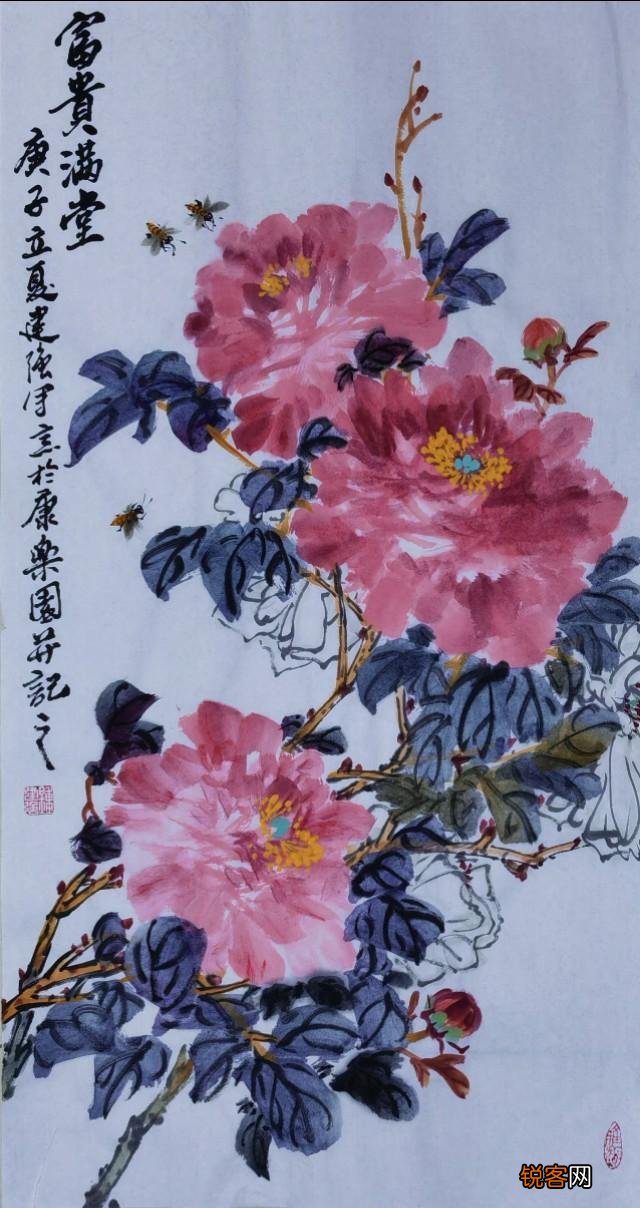 富貴满堂
庚子立夏建强写意於康樂園并記之
锐客网